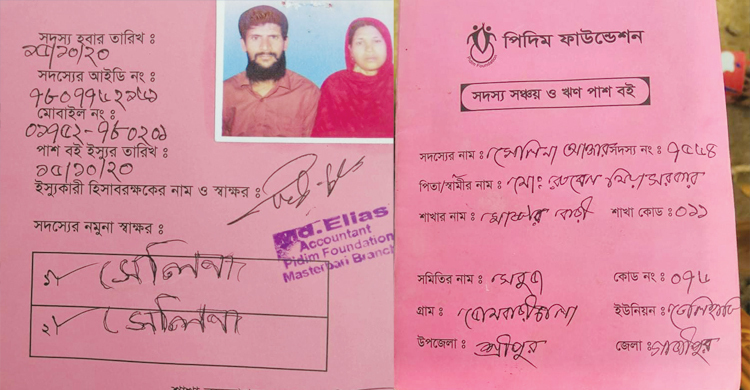 সদস্য হবার তারিখ :
১৫/১০/২০
সদস্যের আইডি নং :
মোবাইল নং :
পাশ বই ইস্যুর তারিখ :
১৫/১০/২০
ইস্যুকারী হিসাবরক্ষকের নাম ও স্বাক্ষর :
Md. Elias
Accountant
Pidim Foundation
Masterbari Branch
সদস্যের নমুনা স্বাক্ষর :
১। সেলিনা
২। সেলিনা
পিদিম ফাউন্ডেশন
সদস্য সঞ্চয় ও ঋণ পাশ বই
সদস্যের নাম : সেলিনা আক্তার সদস্য নং : ৭৫৫৪
পিতা/স্বামীর নাম : মো: রুবেল মিয়া সরকার
শাখার নাম : মাষ্টার বাড়ী শাখা কোড : ০১১
সমিতির নাম : সবুজ কোড নং : ০৭৫
গ্রাম : ইউনিয়ন :
উপজেলা : শ্রীপুর জেলা : গাজীপুর